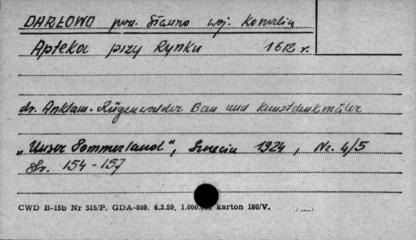 DARŁOWO pow. Sławno woj. Koszalin
Apteka przy Rynku 1613 r.
dr. Anklam. Rügenwalder Bau und Kunstdenkmäler
„Unser Pommerland", Szczecin 1924, Nr. 4/5
Str. 154-157
CWD B-15b Nr 515/P. GDA-809. 6.3.59. 1.000.000 karton 180/V.